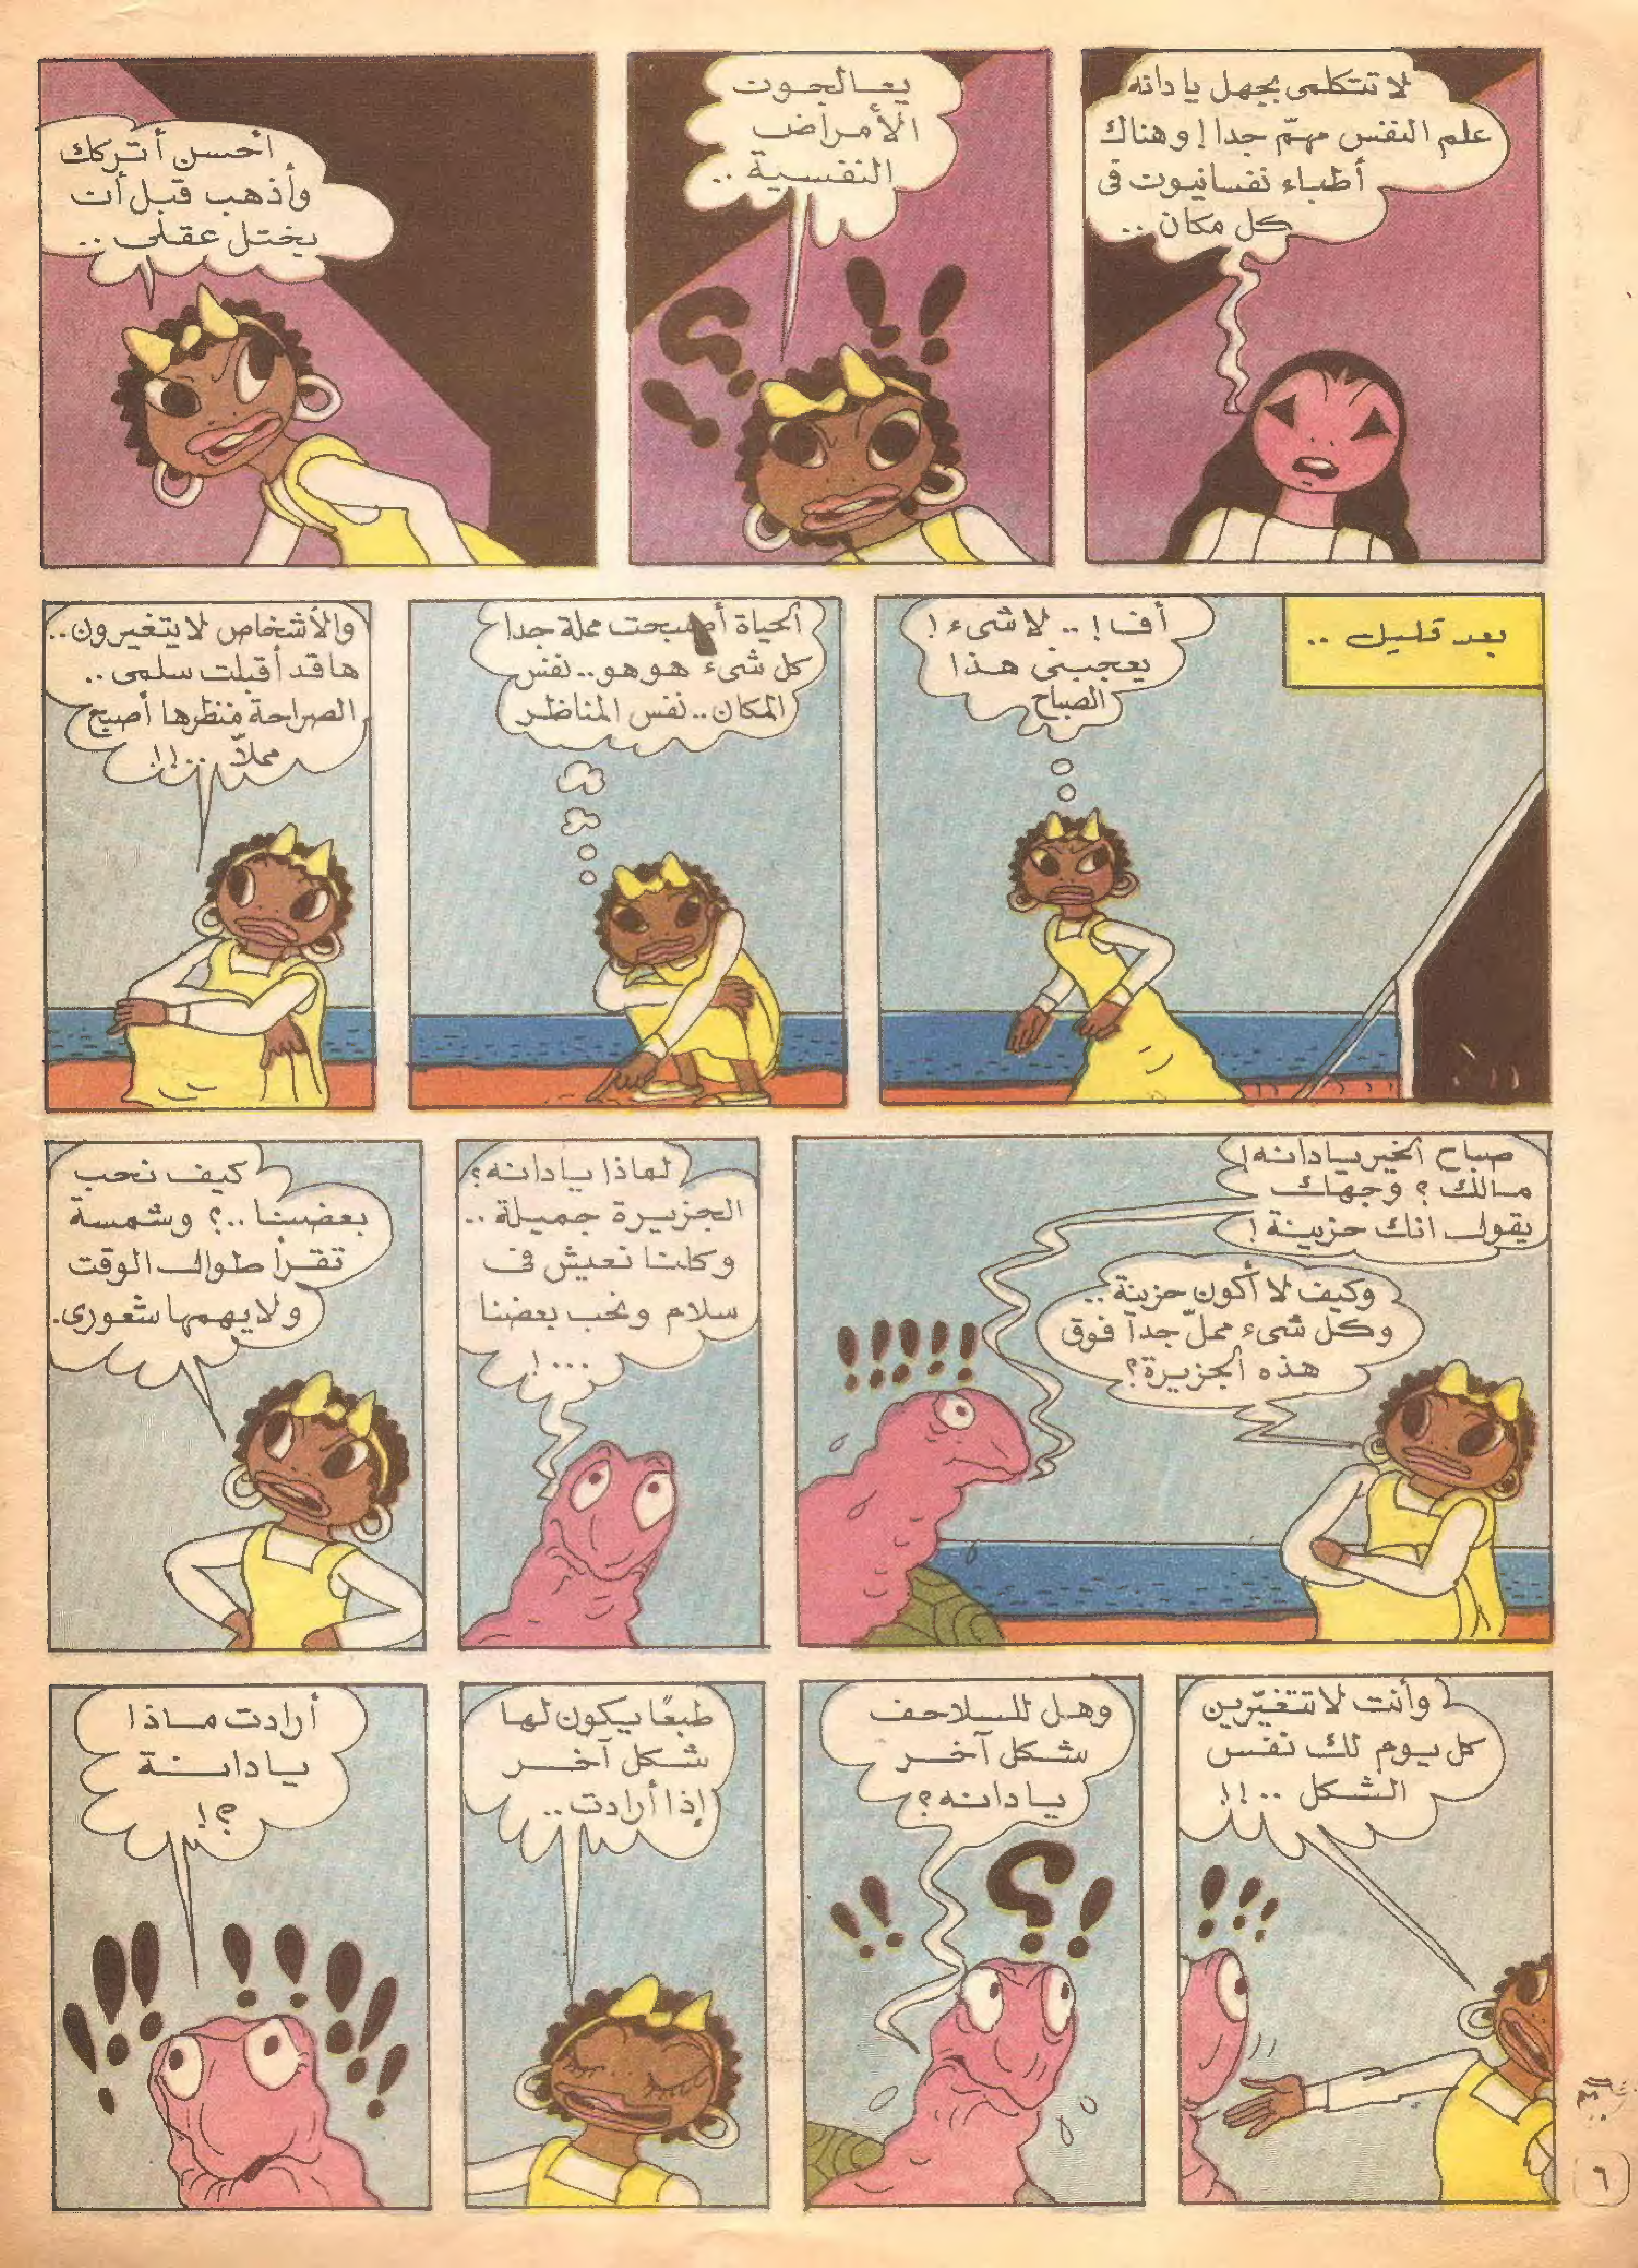 لا تتكلمى بجهل يا دانه
علم النفس مهمّ جدا! وهناك
أطباء نفسانيون فى
كل مكان ..
يعالجون
الأمراض
النفسية ..
أحسن أتركك
وأذهب قبل أن
يختل عقلى ..
بعد قليل ..
أف! .. لا شىء!
يعجبنى هذا
الصباح
الحياة أصبحت مملة جدا
كل شىء هو هو .. نفس
المكان .. نفس المناظر
والأشخاص لا يتغيرون ..
ها قد أقبلت سلمى ..
الصراحة منظرها أصبح
مملاً ..!!
صباح الخير يا دانه!
مالك؟ وجهك
يقول انك حزينة!
وكيف لا أكون حزينة ..
وكل شىء مملّ جداً فوق
هذه الجزيرة؟
لماذا يا دانه؟
الجزيرة جميلة ..
وكلنا نعيش فى
سلام ونحب بعضنا
...!
كيف نحب
بعضنا ..؟ وشمسة
تقرأ طوال الوقت
ولا يهمها شعورى.
وأنت لا تتغيّرين
كل يوم لك نفس
الشكل ..!!
وهل للسلاحف
شكل آخر
يا دانه؟
طبعًا يكون لها
شكل آخر
إذا أرادت ..
أرادت ماذا
يا دانة
؟!
٦